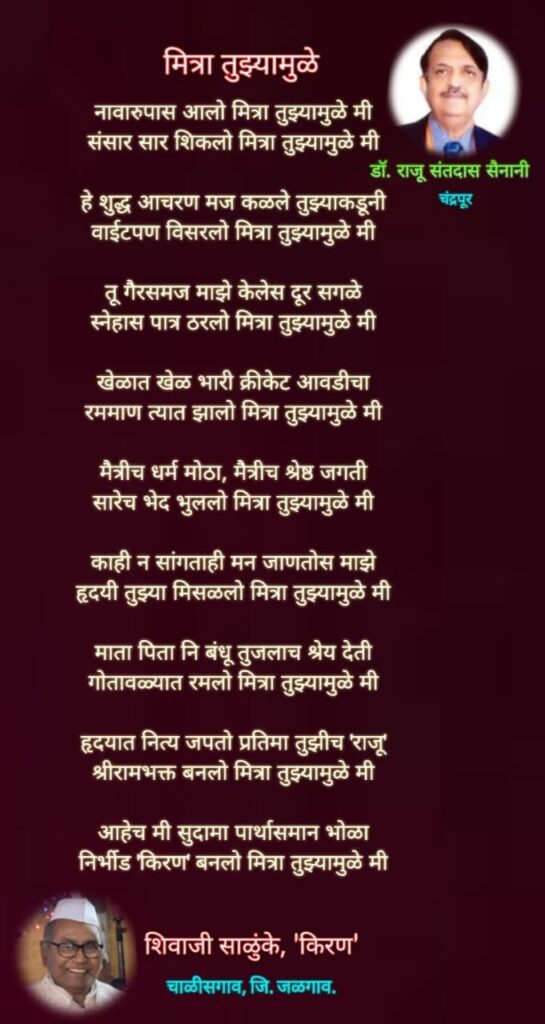 मित्रा तुझ्यामुळे
नावारुपास आलो मित्रा तुझ्यामुळे मी
संसार सार शिकलो मित्रा तुझ्यामुळे मी
डॉ. राजू संतदास सैनानी
चंद्रपूर
हे शुद्ध आचरण मज कळले तुझ्याकडूनी
वाईटपण विसरलो मित्रा तुझ्यामुळे मी
तू गैरसमज माझे केलेस दूर सगळे
स्नेहास पात्र ठरलो मित्रा तुझ्यामुळे मी
खेळात खेळ भारी क्रीकेट आवडीचा
रममाण त्यात झालो मित्रा तुझ्यामुळे मी
मैत्रीच धर्म मोठा, मैत्रीच श्रेष्ठ जगती
सारेच भेद भुललो मित्रा तुझ्यामुळे मी
काही न सांगताही मन जाणतोस माझे
हृदयी तुझ्या मिसळलो मित्रा तुझ्यामुळे मी
माता पिता नि बंधू तुजलाच श्रेय देती
गोतावळ्यात रमलो मित्रा तुझ्यामुळे मी
हृदयात नित्य जपतो प्रतिमा तुझीच 'राजू'
श्रीरामभक्त बनलो मित्रा तुझ्यामुळे मी
आहेच मी सुदामा पार्थासमान भोळा
निर्भीड 'किरण' बनलो मित्रा तुझ्यामुळे मी
शिवाजी साळुंके, 'किरण'
चाळीसगाव, जि. जळगाव.